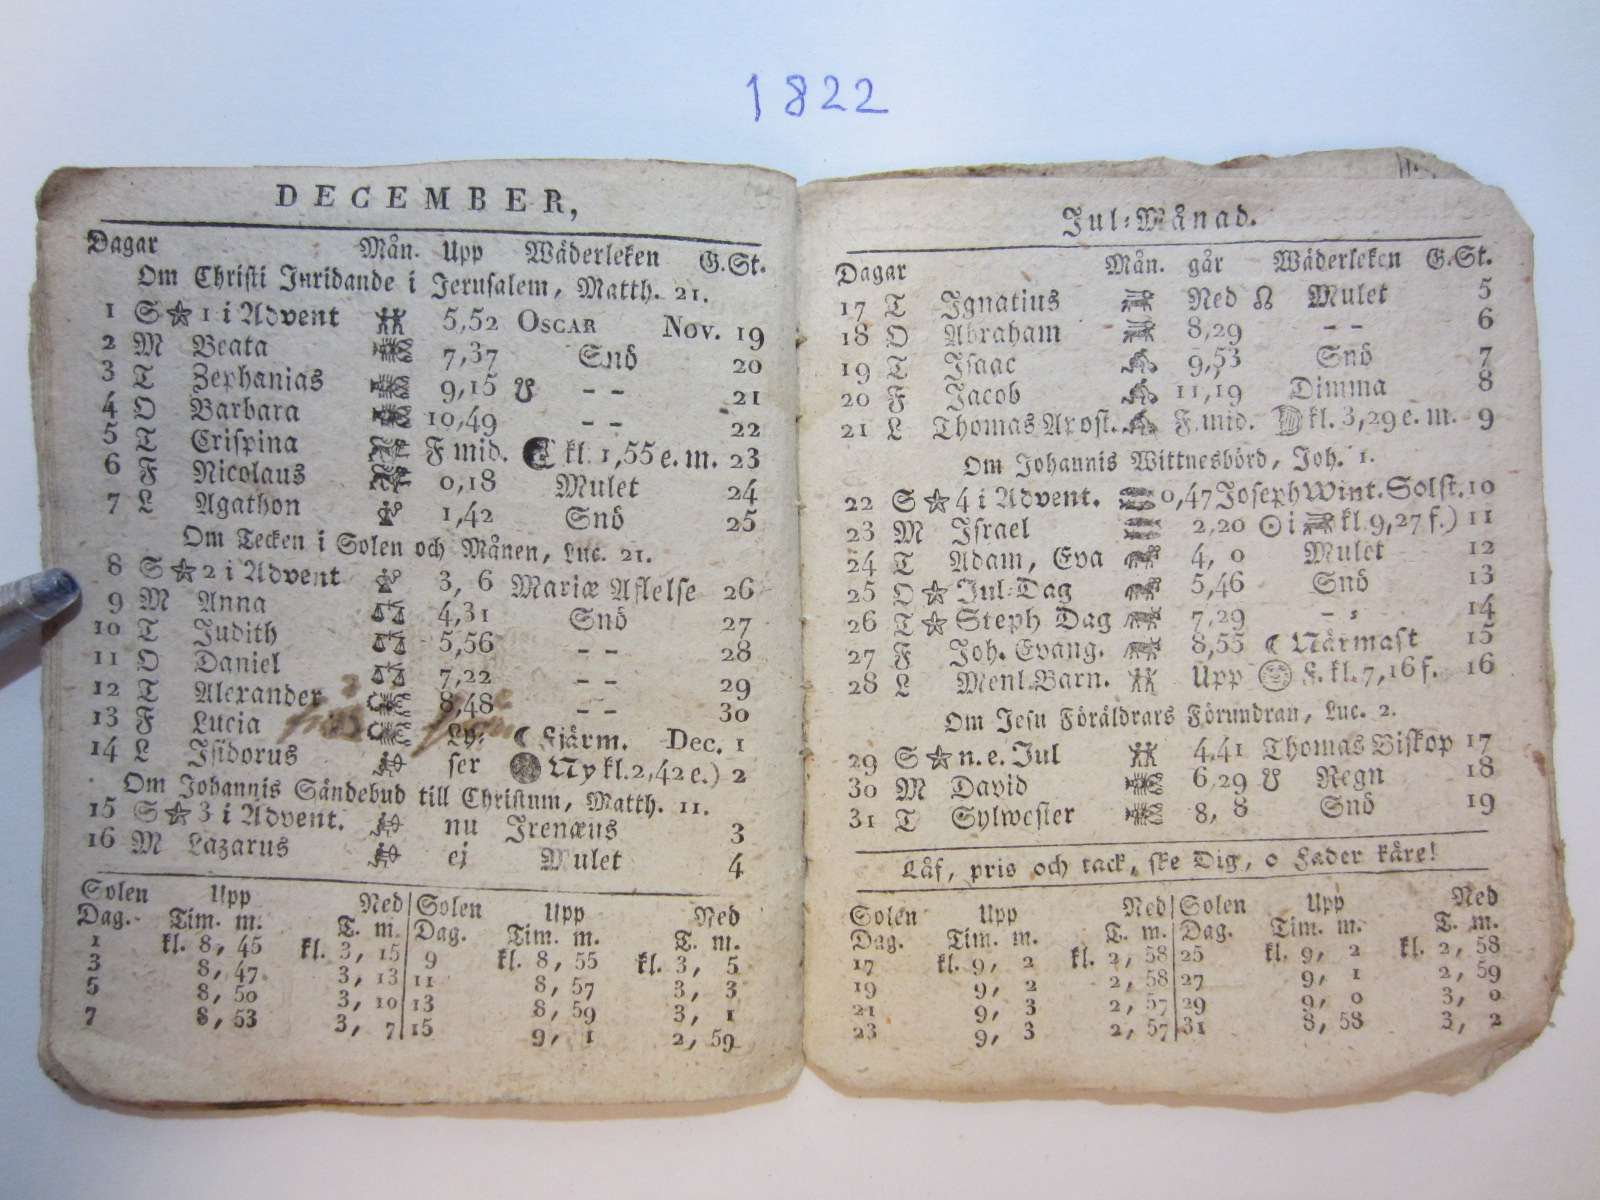 1822
DECEMBER,
Dagar Mån. Upp Wäderleken G.St.
Om Christi Inridande i Jerusalem, Matth. 21.
1 S ☆ 1 i Advent 5,52 OSCAR Nov. 19
2 M Beata 7,37 Snö 20
3 T Zephanias 9,15 ☋ - - 21
4 O Barbara 10,49 - - 22
5 T Crispina F mid. ☾ kl. 1,55 e. m. 23
6 F Nicolaus 0,18 Mulet 24
7 L Agathon 1,42 Snö 25
Om Tecken i Solen och Månen, Luc. 21.
8 S ☆ 2 i Advent 3, 6 Mariæ Aflelse 26
9 M Anna 4,31 Snö 27
10 T Judith 5,56 - - 28
11 O Daniel 7,22 - - 29
12 T Alexander 8,48 - - 30
13 F Lucia Ly- ☾ Fjärm. Dec. 1
14 L Isidorus ser Ny kl. 2,42 e.) 2
Om Johannis Sändebud till Christum, Matth. 11.
15 S ☆ 3 i Advent. nu Irenæus 3
16 M Lazarus ej Mulet 4
Solen Upp Ned Solen Upp Ned
Dag. Tim. m. T. m. Dag. Tim. m. T. m.
1 kl. 8, 45 kl. 3, 15 9 kl. 8, 55 kl. 3, 5
3 8, 47 3, 13 11 8, 57 3, 3
5 8, 50 3, 10 13 8, 59 3, 1
7 8, 53 3, 7 15 9, 1 2, 59
Jul-Månad.
Dagar Mån. går Wäderleken G.St.
17 T Ignatius Ned ☊ Mulet 5
18 O Abraham 8,29 - - 6
19 T Isaac 9,53 Snö 7
20 F Jacob 11,19 Dimma 8
21 L Thomas Apost. F. mid. kl. 3,29 e. m. 9
Om Johannis Wittnesbörd, Joh. 1.
22 S ☆ 4 i Advent. 0,47 Joseph Wint. Solst. 10
23 M Israel 2,20 ☉ i kl. 9,27 f.) 11
24 T Adam, Eva 4, 0 Mulet 12
25 O ☆ Jul-Dag 5,46 Snö 13
26 T ☆ Steph Dag 7,29 - - 14
27 F Joh. Evang. 8,55 ☾ Närmast 15
28 L Menl. Barn. Upp F. kl. 7,16 f. 16
Om Jesu Föräldrars Förundran, Luc. 2.
29 S ☆ n. e. Jul 4,41 Thomas Biskop 17
30 M David 6,29 ☋ Regn 18
31 T Sylwester 8, 8 Snö 19
Låf, pris och tack, ske Dig, o Fader käre!
Solen Upp Ned Solen Upp Ned
Dag. Tim. m. T. m. Dag. Tim. m. T. m.
17 kl. 9, 2 kl. 2, 58 25 kl. 9, 2 kl. 2, 58
19 9, 2 2, 58 27 9, 1 2, 59
21 9, 3 2, 57 29 9, 0 3, 0
23 9, 3 2, 57 31 8, 58 3, 2